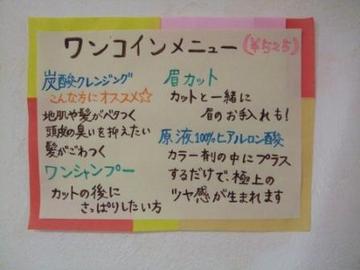 ワンコインメニュー(¥525)
炭酸クレンジング
こんな方にオススメ☆
地肌や髪がベタつく
頭皮の臭いを抑えたい
髪がごわつく
ワンシャンプー
カットの後に
さっぱりしたい方
眉カット
カットと一緒に
眉のお手入れも!
原液100%ヒアルロン酸
カラー剤の中にプラス
するだけで、極上の
ツヤ感が生まれます